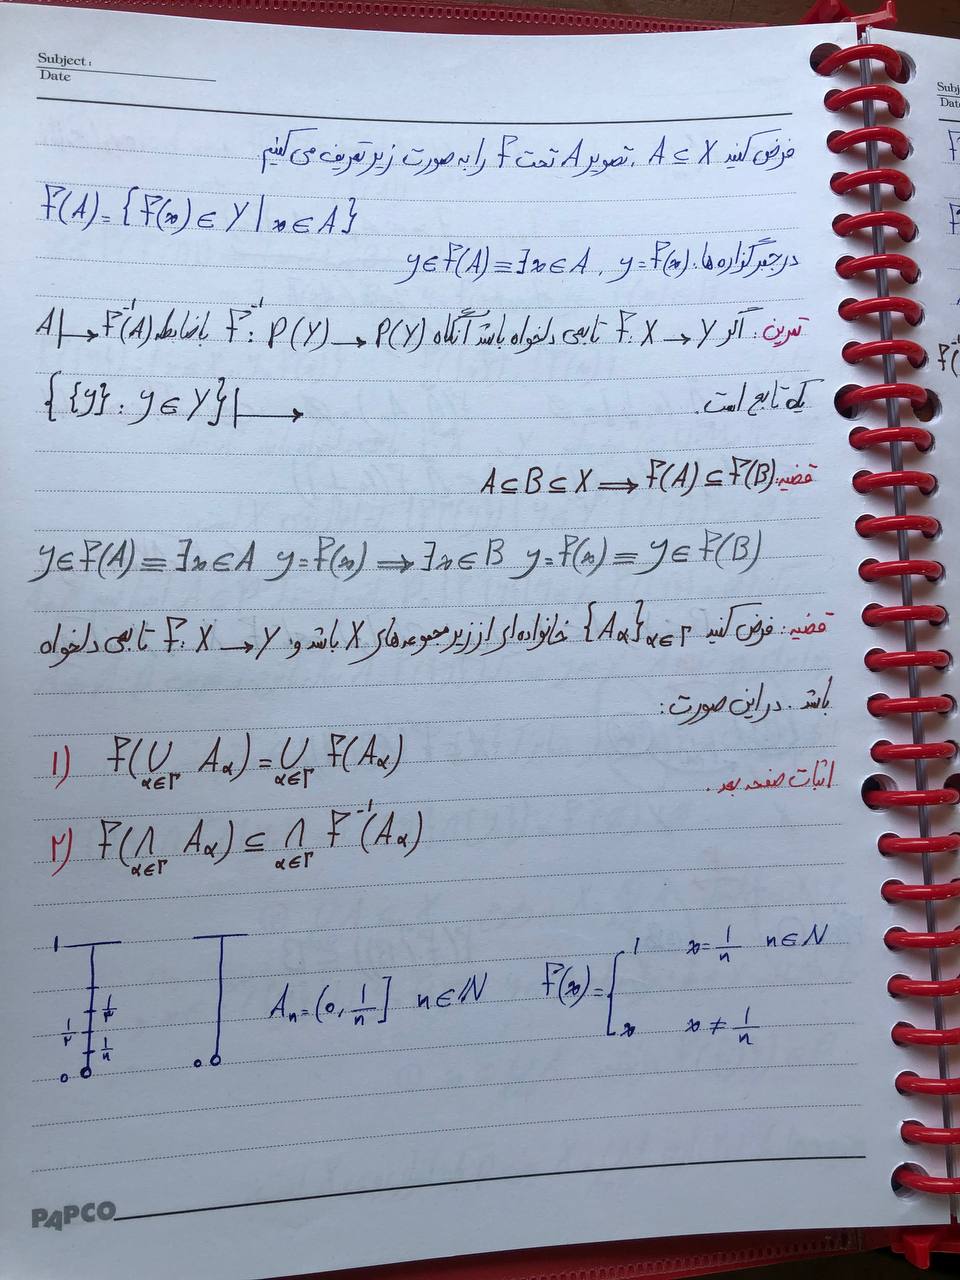 Subject:
Date
فرض کنید A ⊆ X ، تصویر A تحت f را به صورت زیر تعریف می کنیم
f(A) = {f(x) ∈ Y | x ∈ A}
در جبر گزاره ها: y ∈ f(A) ≡ ∃x ∈ A , y = f(x)
تمرین: اگر f: X → Y تابعی دلخواه باشد آنگاه f⁻¹: P(Y) → P(Y) با ضابطه A |→ f⁻¹(A)
یک تابع است. {{y} : y ∈ Y} |→
قضیه: A ⊆ B ⊆ X ⟹ f(A) ⊆ f(B)
y ∈ f(A) ≡ ∃x ∈ A y = f(x) ⟹ ∃x ∈ B y = f(x) ≡ y ∈ f(B)
قضیه: فرض کنید {Aα}α∈Γ خانواده ای از زیر مجموعه های X باشد و f: X → Y تابعی دلخواه
باشد. در این صورت:
۱) f(∪α∈Γ Aα) = ∪α∈Γ f(Aα)
اثبات صفحه بعد.
۲) f(∩α∈Γ Aα) ⊆ ∩α∈Γ f⁻¹(Aα)
An = (0, 1/n] n ∈ ℕ f(x) = { 1 x = 1/n n ∈ N
x x ≠ 1/n
۱ ۱/۲ ۱/۳ 1/n ۰ ۰
PAPCO